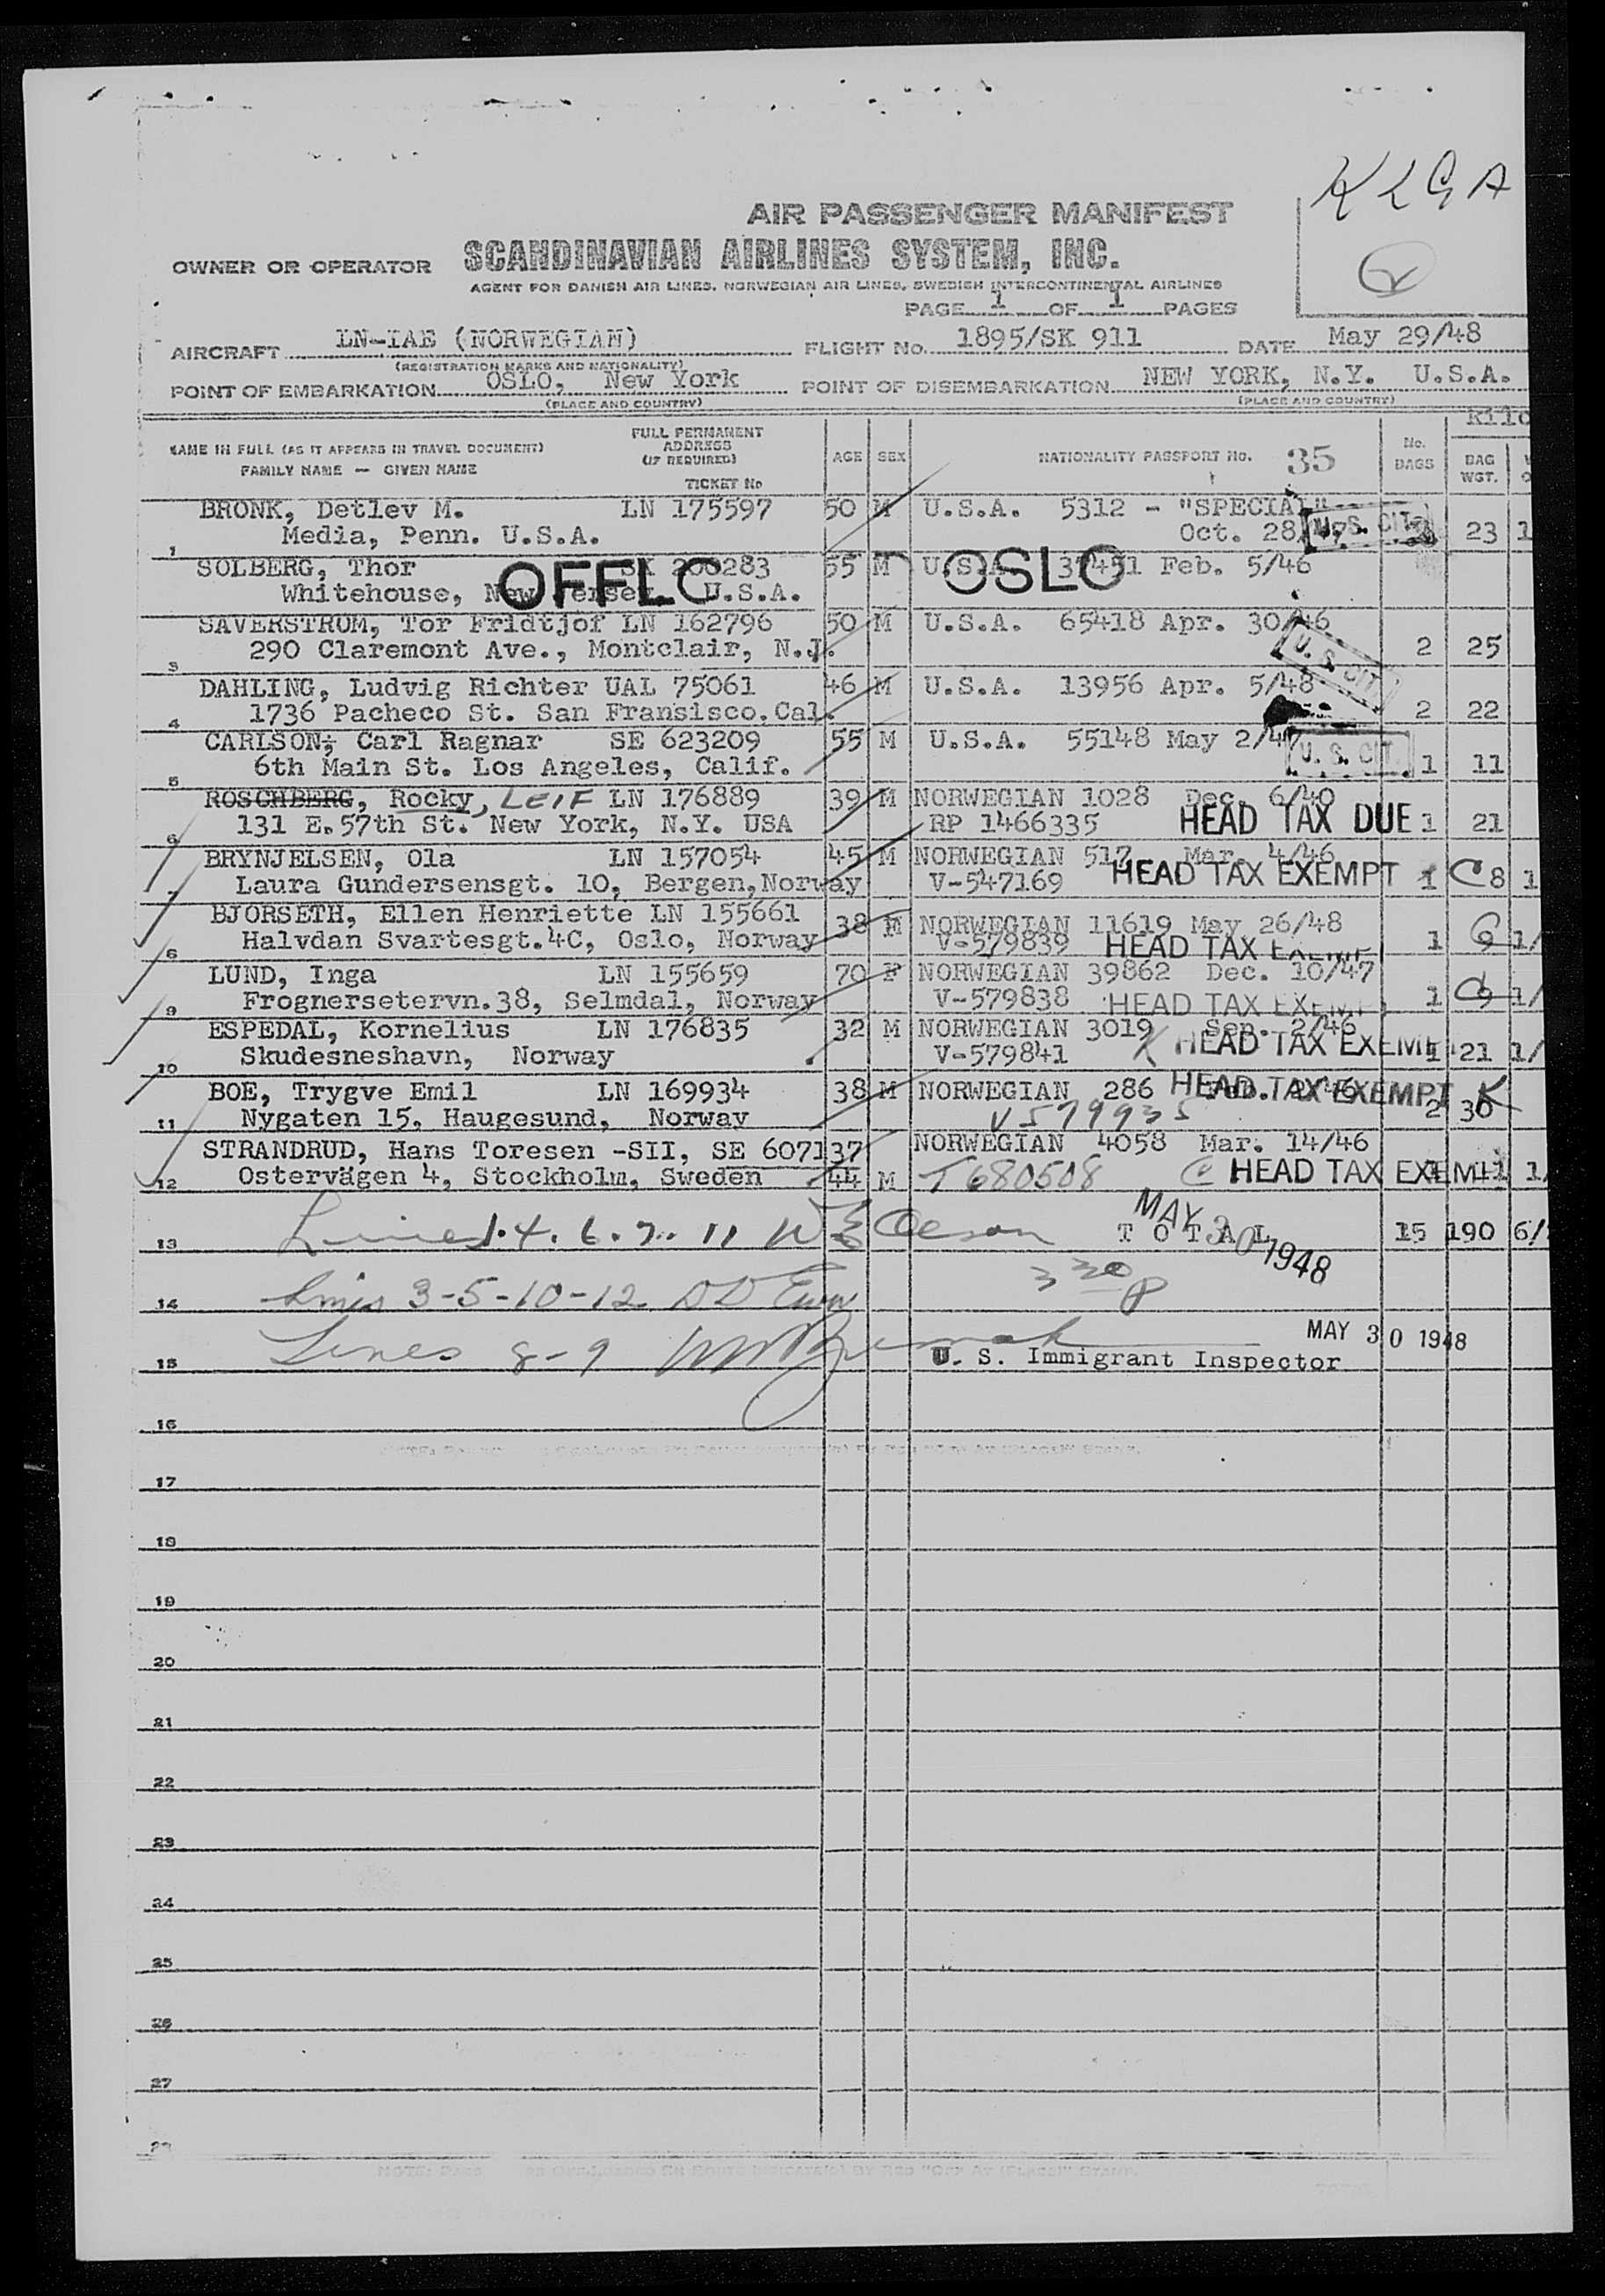 KLGA
AIR PASSENGER MANIFEST
OWNER OR OPERATOR SCANDINAVIAN AIRLINES SYSTEM, INC.
AGENT FOR DANISH AIR LINES, NORWEGIAN AIR LINES, SWEDISH INTERCONTINENTAL AIRLINES
PAGE 1 OF 1 PAGES
AIRCRAFT LN-IAE (NORWEGIAN) FLIGHT No. 1895/SK 911 DATE May 29/48
(REGISTRATION MARKS AND NATIONALITY)
POINT OF EMBARKATION OSLO, New York POINT OF DISEMBARKATION NEW YORK, N.Y. U.S.A.
(PLACE AND COUNTRY) (PLACE AND COUNTRY)
Kilo
NAME IN FULL (AS IT APPEARS IN TRAVEL DOCUMENT) FULL PERMANENT ADDRESS (IF REQUIRED) AGE SEX NATIONALITY PASSPORT No. 35 No. BAGS BAG WGT.
FAMILY NAME — GIVEN NAME TICKET No
BRONK, Detlev M. LN 175597 50 M U.S.A. 5312 - "SPECIAL"
1 Media, Penn. U.S.A. Oct. 28/47 U.S. CIT. 23 1
SOLBERG, Thor SK 200283 55 M U.S.A. Feb. 5/46
Whitehouse, New Jersey U.S.A. OFFLO OSLO
SAVERSTROM, Tor Fridtjof LN 162796 50 M U.S.A. 65418 Apr. 30/46
3 290 Claremont Ave., Montclair, N.J. U. S. CIT 2 25
DAHLING, Ludvig Richter UAL 75061 46 M U.S.A. 13956 Apr. 5/48
4 1736 Pacheco St. San Fransisco. Cal. 2 22
CARLSON, Carl Ragnar SE 623209 55 M U.S.A. 55148 May 2/47
5 6th Main St. Los Angeles, Calif. U. S. CIT. 1 11
ROSCHBERG, Rocky, LEIF LN 176889 39 M NORWEGIAN 1028 Dec. 6/40
6 131 E. 57th St. New York, N.Y. USA RP 1466335 HEAD TAX DUE 1 21
BRYNJELSEN, Ola LN 157054 45 M NORWEGIAN 517 Mar. 4/46
7 Laura Gundersensgt. 10, Bergen, Norway V-547169 HEAD TAX EXEMPT 1 C 8 1
BJORSETH, Ellen Henriette LN 155661 38 F NORWEGIAN 11619 May 26/48
8 Halvdan Svartesgt.4C, Oslo, Norway V-579839 HEAD TAX EXEMPT 1 9 1/
LUND, Inga LN 155659 70 F NORWEGIAN 39862 Dec. 10/47
9 Frognersetervn.38, Selmdal, Norway V-579838 HEAD TAX EXEMPT 1 C 9 1/
ESPEDAL, Kornelius LN 176835 32 M NORWEGIAN 3019 Sep. 2/46
10 Skudesneshavn, Norway V-579841 K HEAD TAX EXEMPT 1 21 1/
BOE, Trygve Emil LN 169934 38 M NORWEGIAN 286 HEAD TAX EXEMPT K
11 Nygaten 15, Haugesund, Norway V579935 2 30
STRANDRUD, Hans Toresen -SII, SE 607137 NORWEGIAN 4058 Mar. 14/46
12 Ostervägen 4, Stockholm, Sweden 44 M T680508 C HEAD TAX EXEMPT 11 1/
13 Lines 1. 4. 6. 7. 11 W E Oleson T O T A L MAY 30 1948 15 190 6/
14 Lines 3-5-10-12 330p
15 Lines 8-9 MAY 30 1948
U. S. Immigrant Inspector
16
17
18
19
20
21
22
23
24
25
26
27